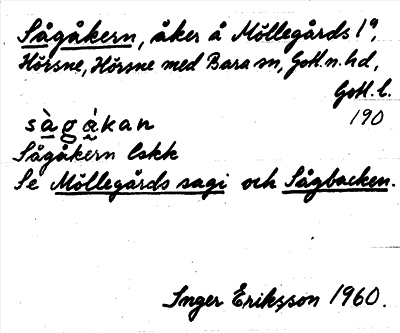 Sågåkern, åker å Möllegårds 1ª,
Hörsne, Hörsne med Bara sn, Gotl. n. hd,
Gotl. l.
190
sàgákan
Sågåkern lskk
Se Möllegårds sagi och Sågbacken.
Inger Eriksson 1960.